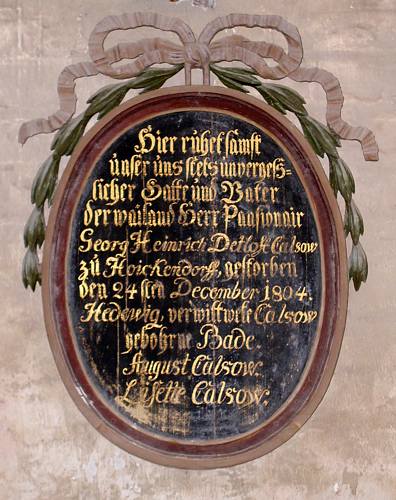 Hier ruhet sanft
unser uns stets unvergeß=
licher Gatte und Vater
der wailand Herr Pensionair
Georg Heinrich Detloff Calsow
zu Hoickendorff, gestorben
den 24sten December 1804.
Hedewig, verwittwete Calsow
gebohrne Bade.
August Calsow.
Lisette Calsow.